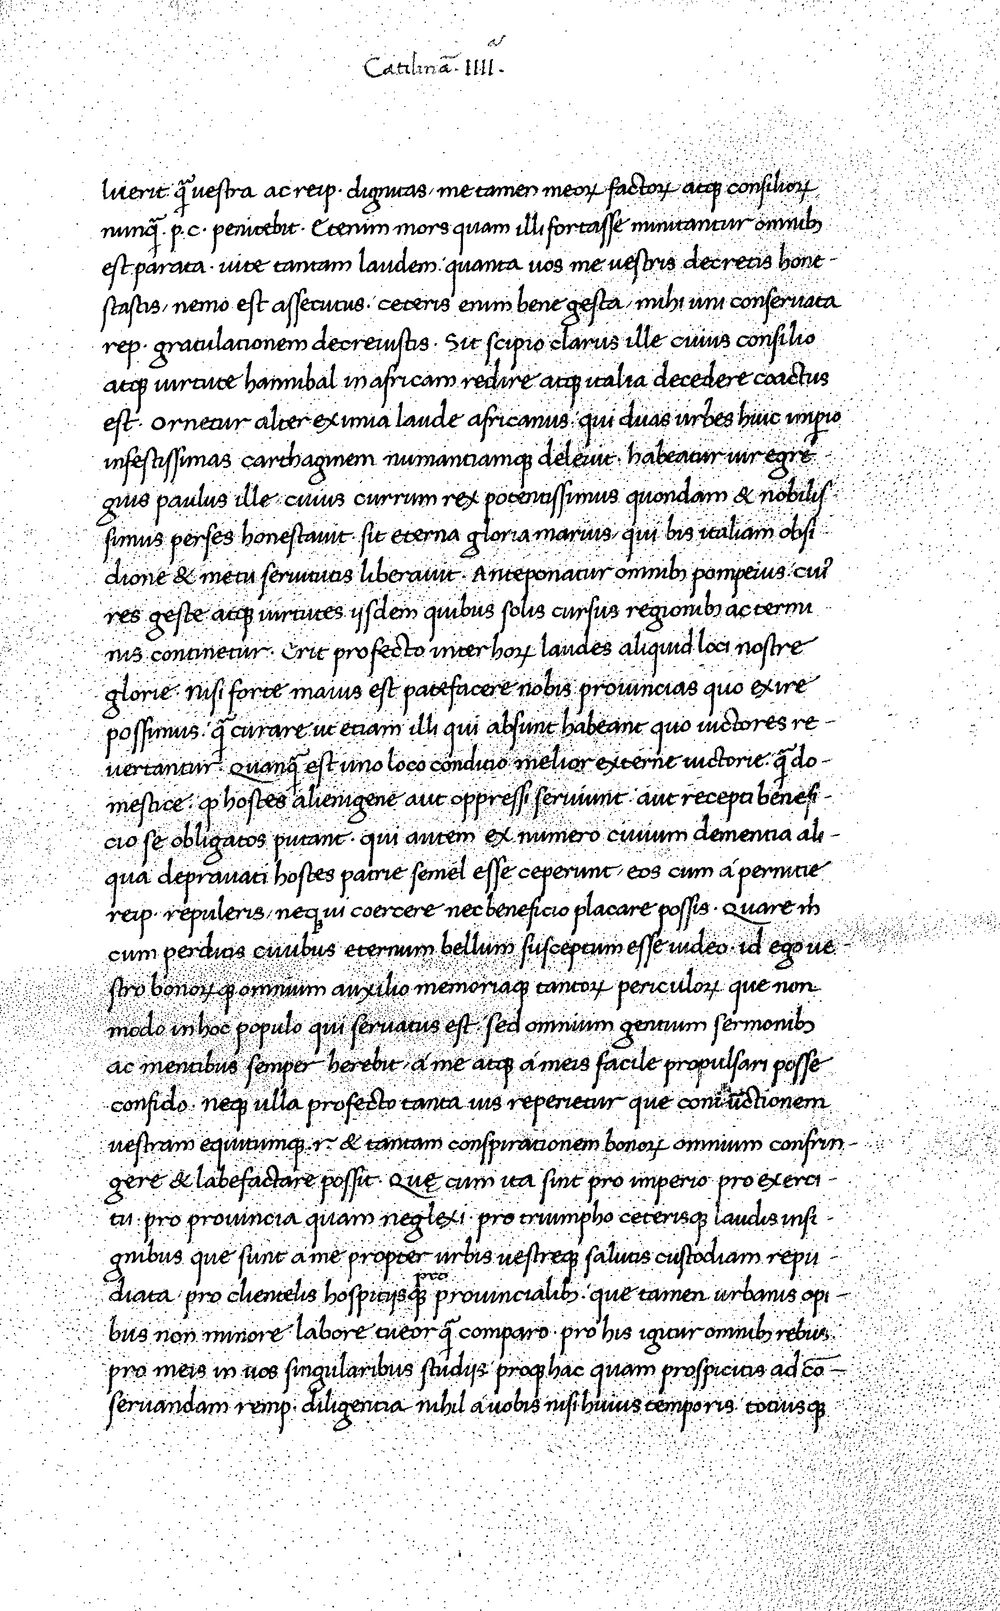 Catilinā. IIIIᵃ.
luerit q̄ vestra ac reip. dignitas, me tamen meoꝝ factoꝝ atqꝫ consilioꝝ
nunq̄. p.c. penitebit. Etenim mors quam illi fortasse minitantur omnibꝫ
est parata. uite tantam laudem. quanta uos me uestris decretis hone-
stastis, nemo est assecutus. ceteris enim bene gesta, mihi uni conseruata
rep. gratulationem decreuistis. Sit scipio clarus ille cuius consilio
atqꝫ uirtute hannibal in africam redire atqꝫ italia decedere coactus
est. Ornetur alter eximia laude africanus. qui duas urbes huic imꝑio
infestissimas carthaginem numantiamqꝫ deleuit. habeatur uir egre-
gius paulus ille cuius currum rex potentissimus quondam & nobilis-
simus perses honestauit. sit eterna gloria marius, qui bis italiam obsi
dione & metu seruitutis liberauit. Anteponatur omnibꝫ pompeius. cuiꝰ
res geste atqꝫ uirtutes ijsdem quibus solis cursus regionibꝫ ac termi
nis continetur. Erit profecto inter hoꝝ laudes aliquid loci nostre
glorie. nisi forte maius est patefacere nobis prouincias quo exire
possimus. q̄ curare ut etiam illi qui absunt habeant quo uictores re-
uertantur. Quanq̄ est uno loco conditio melior externe uictorie. q̄ do-
mestice. ꝙ hostes alienigene aut oppressi seruiunt. aut recepti benefi-
cio se obligatos putant. qui autem ex numero ciuium dementia ali-
qua deprauati hostes patrie semel esse ceperunt, eos cum á pernitie
reip. repuleris, neqꝫ ui coercere nec beneficio placare possis. Quare m̄
cum perditis ciuibus eternum bellum susceptum esse uideo. id ego ue-
stro bonoꝝqꝫ omnium auxilio memoriaqꝫ tantoꝝ periculoꝝ que non
modo in hoc populo qui seruatus est. sed omnium gentium sermonibꝫ
ac mentibus semper herebit, á me atqꝫ á meis facile propulsari posse
confido. neqꝫ ulla profecto tanta uis reperietur que coniūctionem
uestram equitumqꝫ .r. & tantam conspirationem bonoꝝ omnium confrin-
gere & labefactare possit. Quę cum ita sint pro imperio pro exerci-
tu. pro prouincia quam neglexi. pro triumpho ceterisqꝫ laudis insi-
gnibus que sunt a me propter urbis uestreqꝫ salutis custodiam repu-
diata pro clientelis hospitijsqꝫ pro prouincialibꝫ. que tamen urbanis opi-
bus non minore labore tueor q̄ comparo. pro his igitur omnibꝫ rebus.
pro meis in uos singularibus studijs proqꝫ hac quam prospicitis ad cō-
seruandam remp. diligentia nihil a uobis nisi huius temporis totiusqꝫ